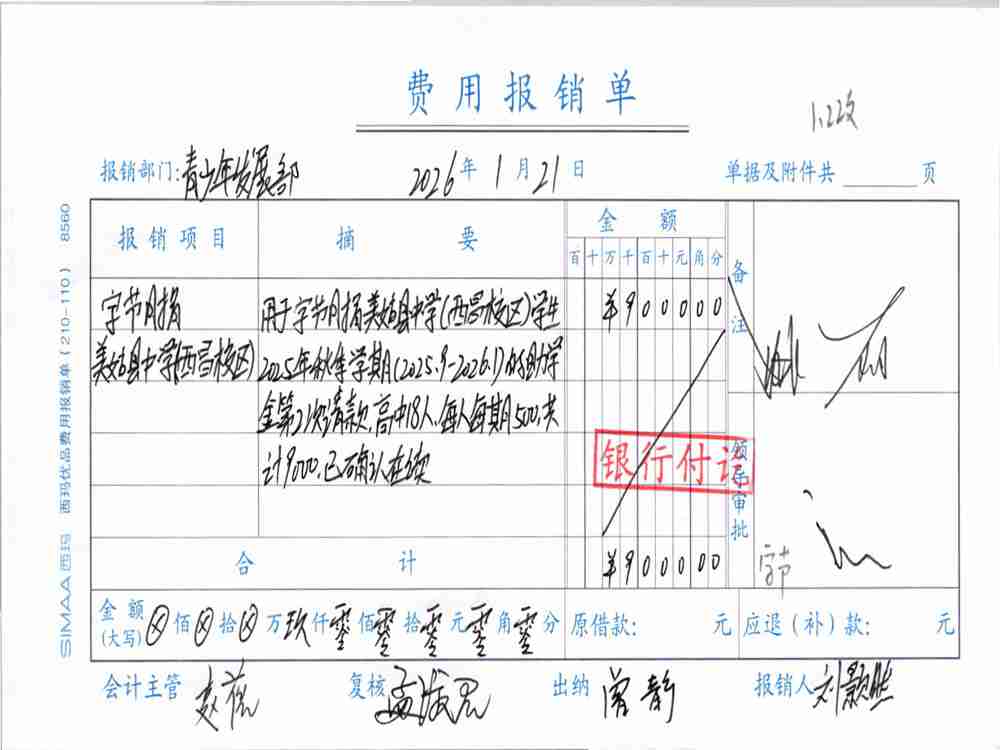 费用报销单
1.22改
报销部门:青少年发展部 2026年1月21日 单据及附件共 页
SIMAA西玛 西玛优品费用报销单(210-110) 8560
报销项目 摘要 金额 备注
百十万千百十元角分
字节月捐 用于字节月捐美姑县中学(西昌校区)学生 ¥900000
美姑县中学(西昌校区) 2025年秋季学期(2025.9-2026.1)的助学
金第21次请款,高中18人,每人每期500,共
计9000.已确认在读
银行付讫
领导审批
合计 ¥900000
字节
金额(大写) ⊗佰⊗拾⊗万玖仟零佰零拾零元零角零分 原借款: 元 应退(补)款: 元
会计主管 复核 出纳 曾静 报销人 刘颢然